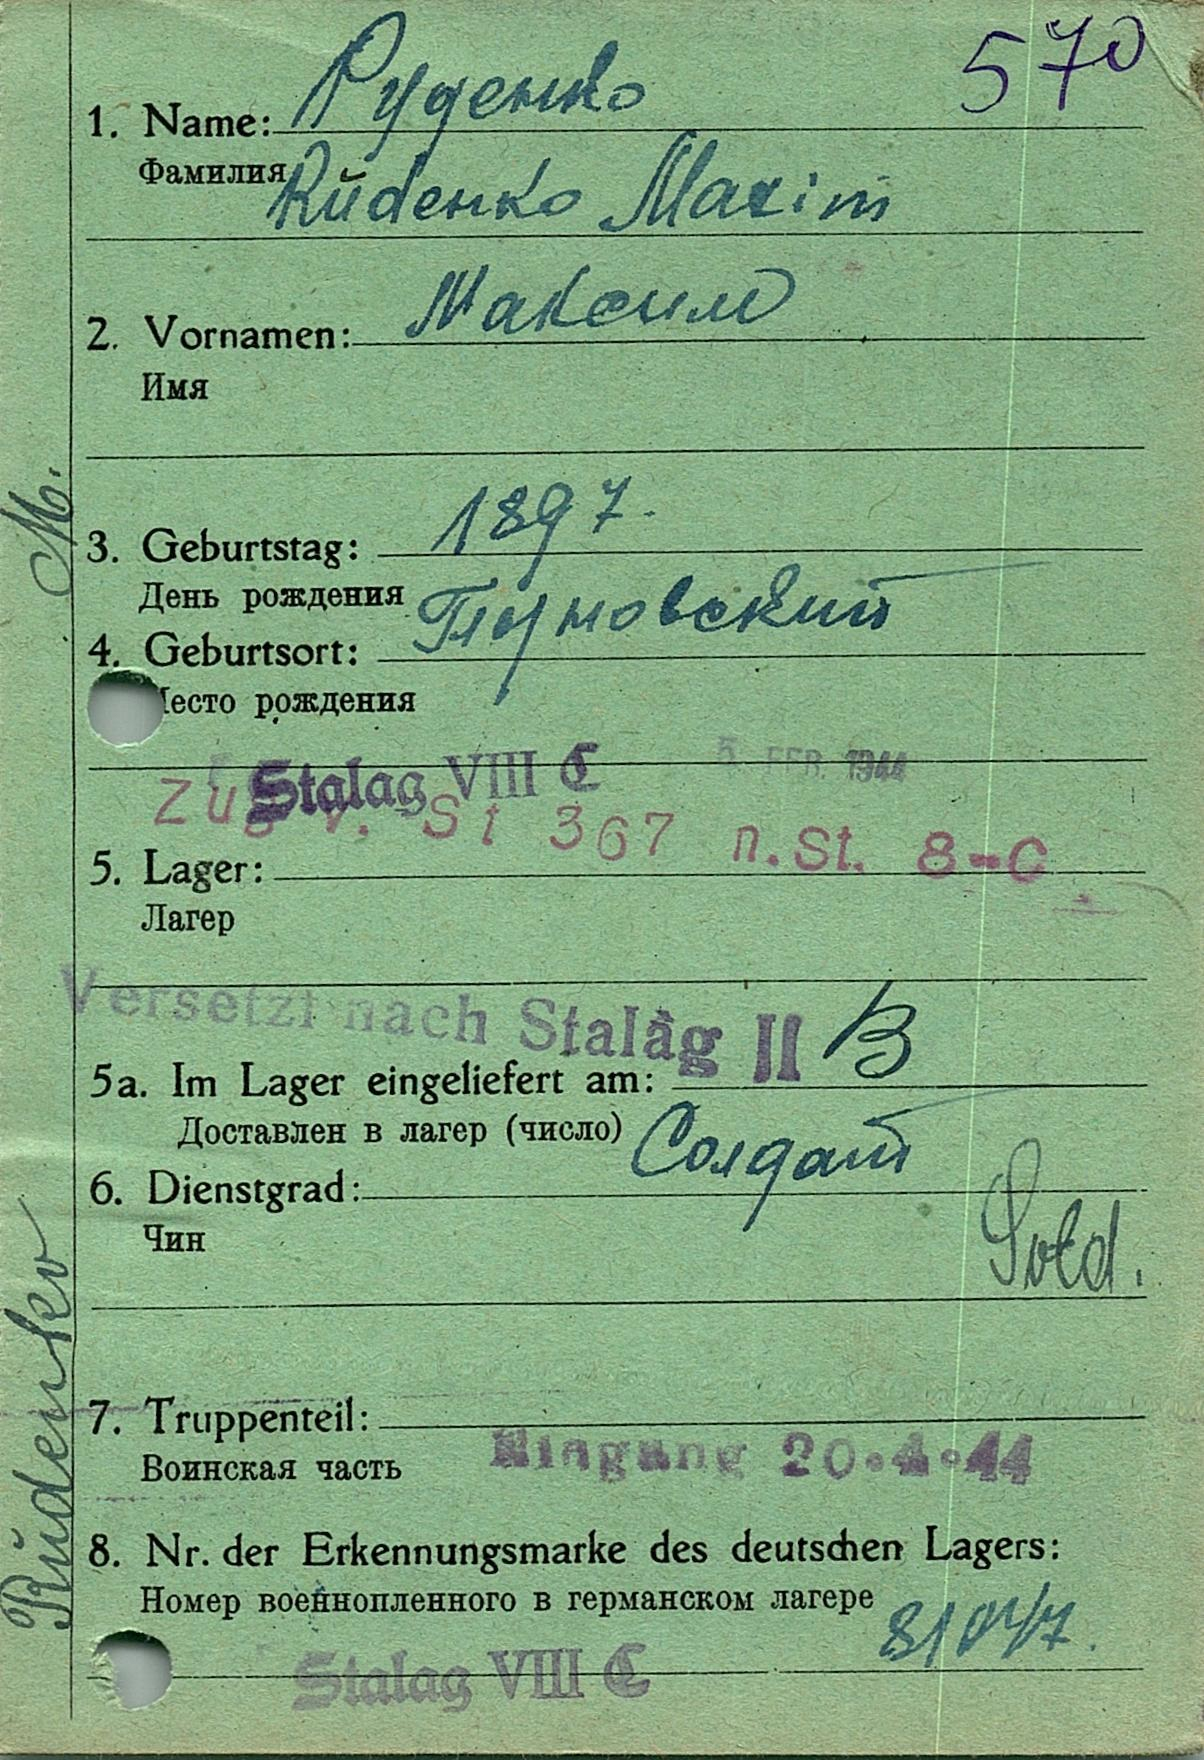 570
Руденко
1. Name:
Фамилия
Rŭdenko Maxim
2. Vornamen: Максим
Имя
3. Geburtstag: 1897.
День рождения
4. Geburtsort:
есто рождения
Stalag VIII C 5. FEB. 1944
Zug v. St 367 n. St. 8-C
5. Lager:
Лагер
Versetzt nach Stalag II B
5a. Im Lager eingeliefert am:
Доставлен в лагер (число)
6. Dienstgrad: Солдат
Чин
Sold.
7. Truppenteil:
Воинская часть
Eingang 20.4.44
8. Nr. der Erkennungsmarke des deutschen Lagers:
Номер военнопленного в германском лагере
Stalag VIII C
Rŭdenko M.